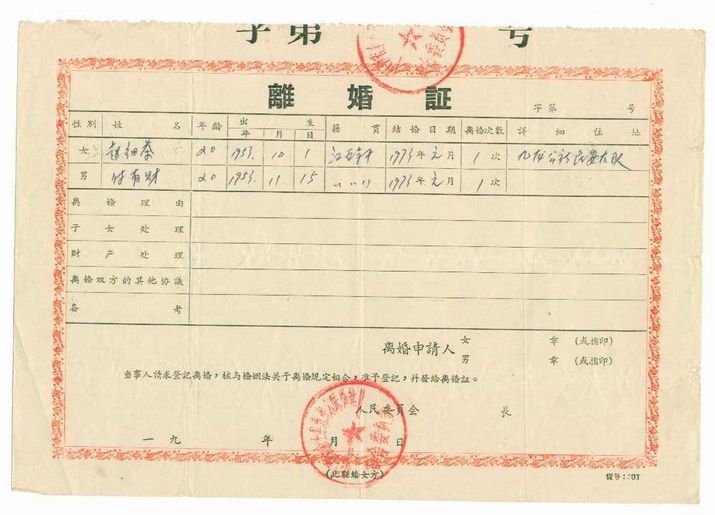 字第 号
離婚証
字第 号
性別 姓 名 年齡 出 生 年 月 日 籍 貫 結婚日期 離婚次數 詳細住址
女 20 1953. 10 1 1973年元月 1次
男 20 1953. 11 15 〃〃〃 1973年元月 1次
离婚理由
子女处理
財产处理
离婚双方的其他协議
备考
离婚申請人 女 章 (或指印)
男 章 (或指印)
当事人請求登記离婚,核与婚姻法关于离婚規定相合,准予登記,幷發給离婚証。
人民委員会 長
一九 年 月 日
(此联給女方)